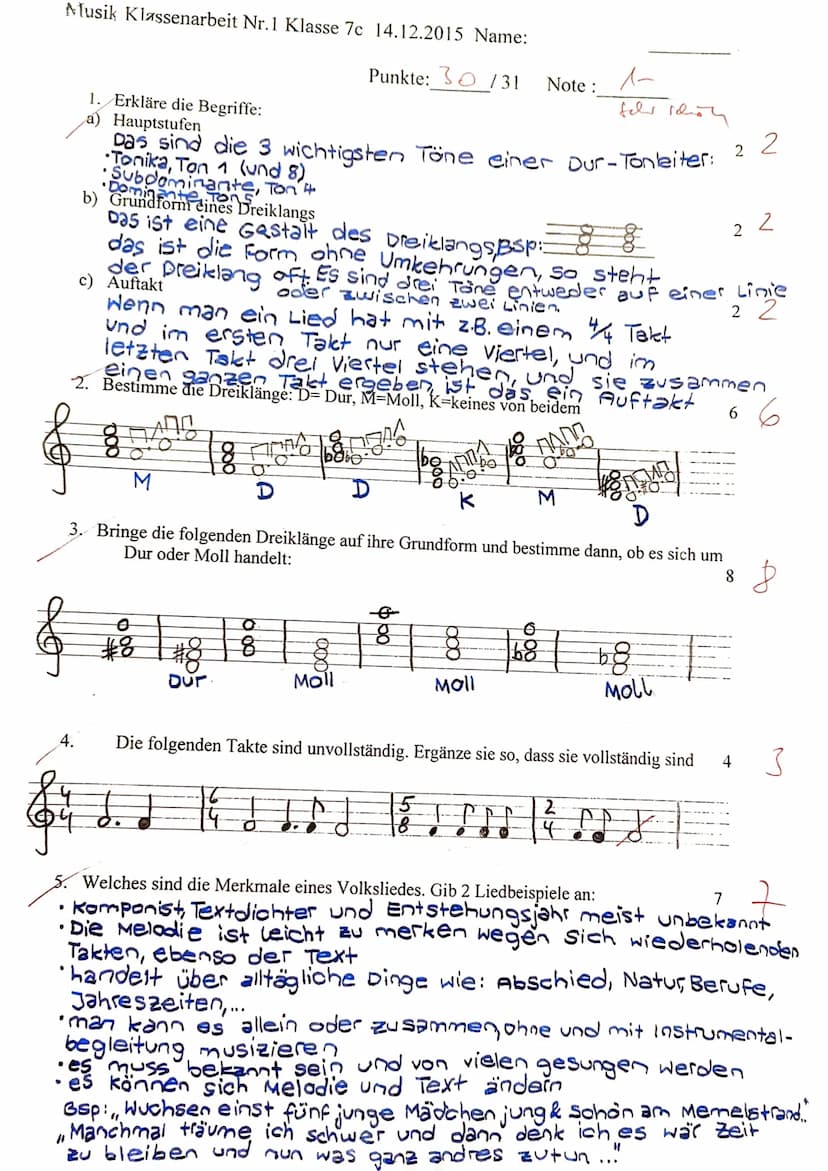 Musik Klassenarbeit Nr.1 Klasse 7c 14.12.2015 Name:
Punkte: 30 / 31 Note : 1-
sehr schön
1. Erkläre die Begriffe:
a) Hauptstufen
Das sind die 3 wichtigsten Töne einer Dur-Tonleiter: 2 2
·Tonika, Ton 1 (und 8)
·Subdominante, Ton 4
·Dominante, Ton 5
b) Grundform eines Dreiklangs
Das ist eine Gestalt des Dreiklangs, Bsp: 2 2
das ist die Form ohne Umkehrungen, so steht
der Dreiklang oft. Es sind drei Töne entweder auf einer Linie
oder zwischen zwei Linien.
c) Auftakt 2 2
Wenn man ein Lied hat mit z.B. einem 4/4 Takt
und im ersten Takt nur eine Viertel, und im
letzten Takt drei Viertel stehen, und sie zusammen
einen ganzen Takt ergeben, ist das ein Auftakt
2. Bestimme die Dreiklänge: D= Dur, M=Moll, K=keines von beidem 6 6
M D D K M D
3. Bringe die folgenden Dreiklänge auf ihre Grundform und bestimme dann, ob es sich um
Dur oder Moll handelt:
8 8
Dur Moll Moll Moll
4. Die folgenden Takte sind unvollständig. Ergänze sie so, dass sie vollständig sind 4 3
4/4 6/4 5/8 2/4
5. Welches sind die Merkmale eines Volksliedes. Gib 2 Liedbeispiele an: 7 7
· Komponist, Textdichter und Entstehungsjahr meist unbekannt
· Die Melodie ist leicht zu merken wegen sich wiederholenden
Takten, ebenso der Text
· handelt über alltägliche Dinge wie: Abschied, Natur, Berufe,
Jahreszeiten,...
· man kann es allein oder zusammen, ohne und mit Instrumental-
begleitung musizieren
· es muss bekannt sein und von vielen gesungen werden
· es können sich Melodie und Text ändern
Bsp: „Wuchsen einst fünf junge Mädchen jung & schön am Memelstrand.."
„Manchmal träume ich schwer und dann denk ich es wär Zeit
zu bleiben und nun was ganz andres zutun ..."